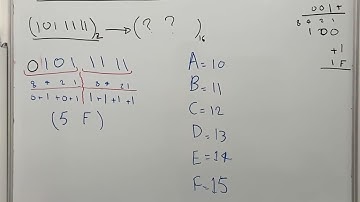 (101 1111)2 → (? ?)16
0101 1111
8 4 2 1 8 4 2 1
0+1+0+1 1+1+1+1
(5 F)
A=10
B=11
C=12
D=13
E=14
F=15
001+
8 4 2 1
100
+1
1F